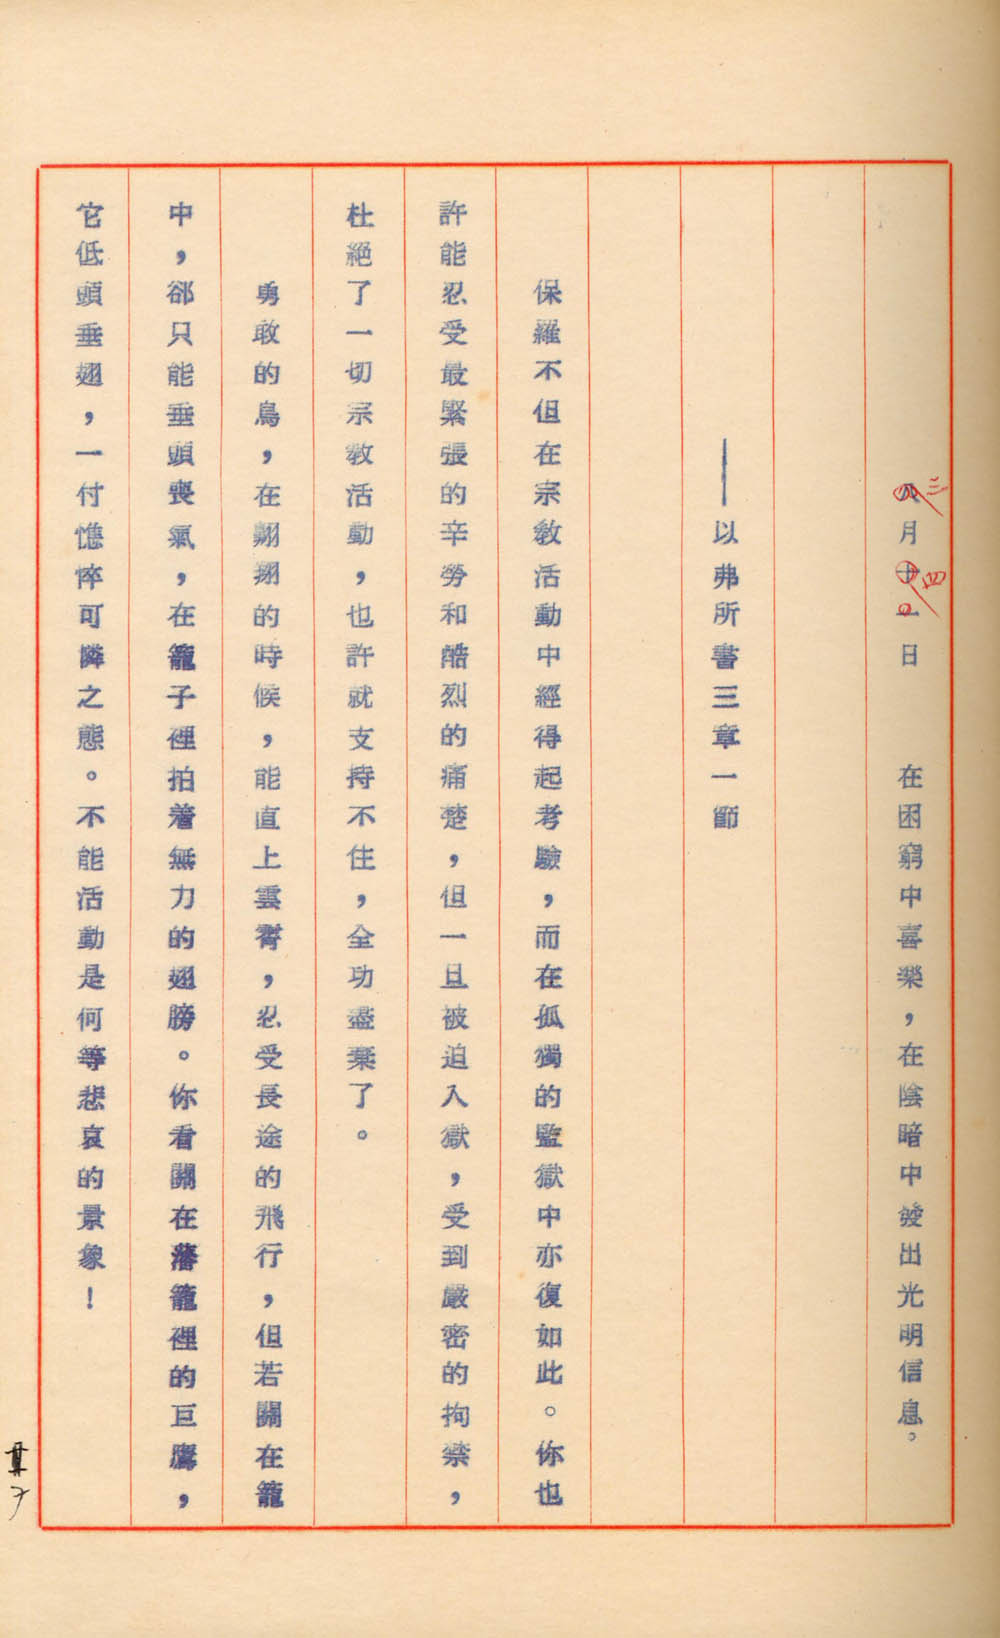 八月十一日　在困窮中喜樂，在陰暗中發出光明信息。
三
四
——以弗所書三章一節
保羅不但在宗教活動中經得起考驗，而在孤獨的監獄中亦復如此。你也
許能忍受最緊張的辛勞和酷烈的痛楚，但一旦被迫入獄，受到嚴密的拘禁，
杜絕了一切宗教活動，也許就支持不住，全功盡棄了。
勇敢的鳥，在翱翔的時候，能直上雲霄，忍受長途的飛行，但若關在籠
中，卻只能垂頭喪氣，在籠子裡拍着無力的翅膀。你看關在藩籠裡的巨鷹，
它低頭垂翅，一付憔悴可憐之態。不能活動是何等悲哀的景象！